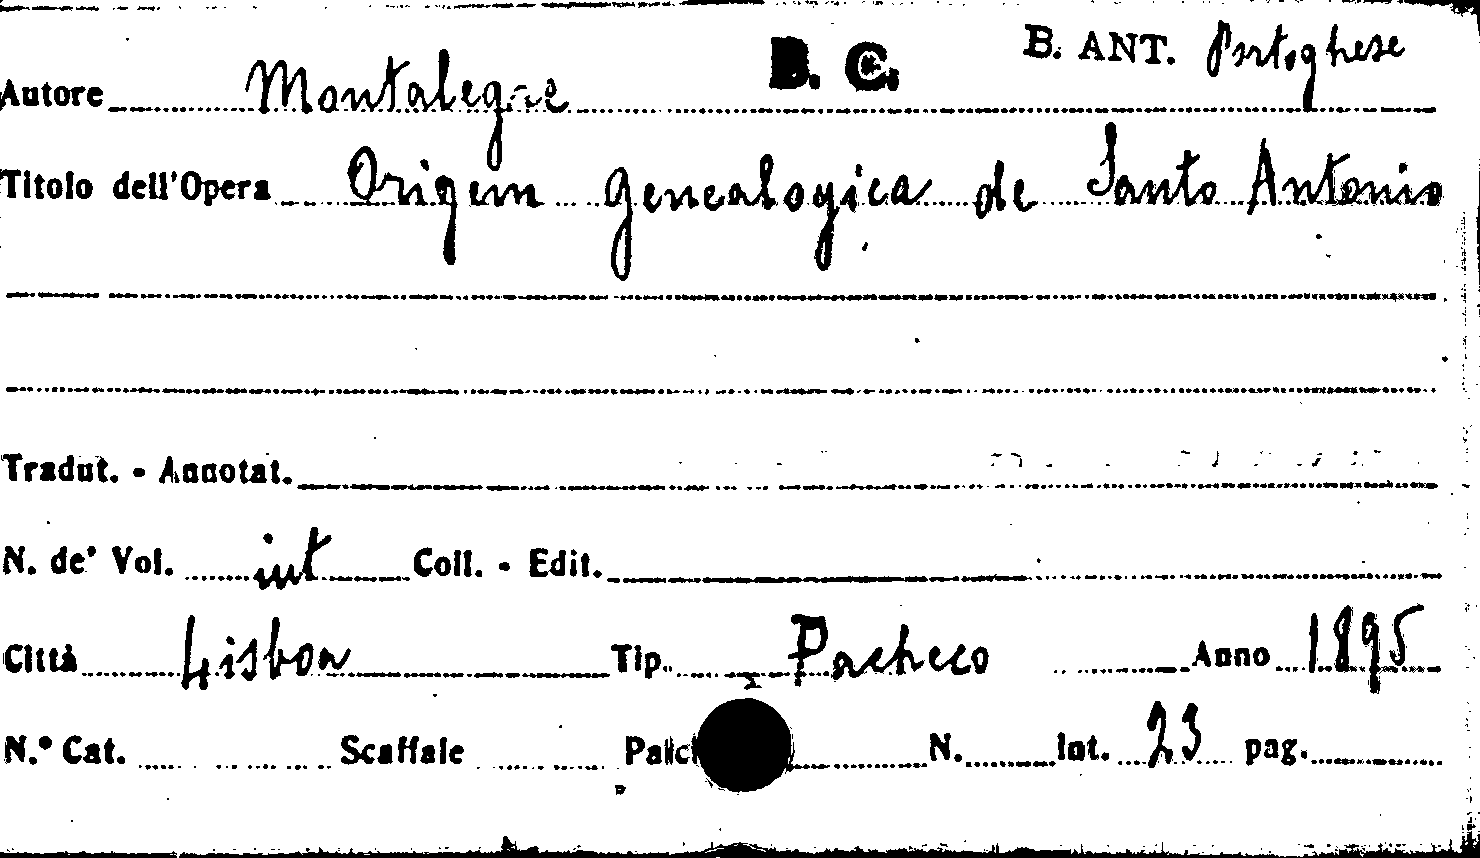 B. C. B. ANT. Portoghese
Autore Montalegre
Titolo dell'Opera Origem genealogica de Santo Antonio
Tradut. - Annotat.
N. de' Vol. int Coll. - Edit.
Città Lisboa Tip. Pacheco Anno 1895
N.º Cat. Scaffale Palch N. Int. 23 pag.